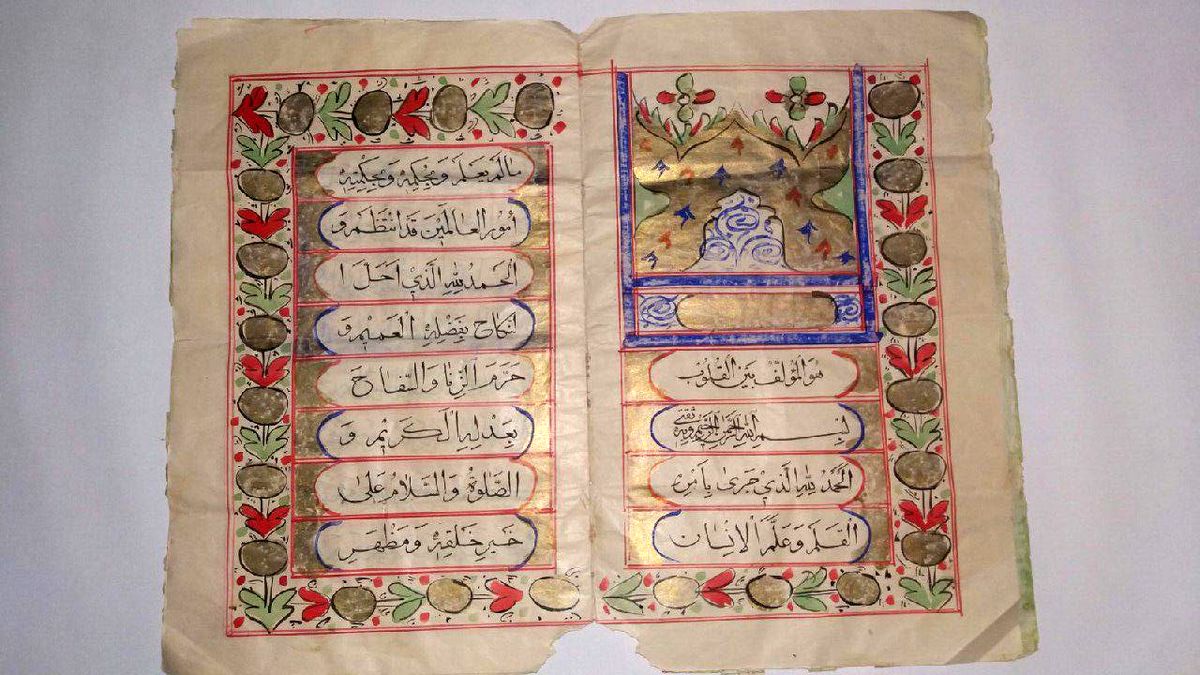 هوالمؤلف بين القلوب
بسم الله الرحمن الرحيم وبه ثقتي
الحمد لله الذي جرى بامره
القلم وعلم الانسان
مالم يعلم وبحكمه وبحكمته
امور العالمين قد انتظم و
الحمد لله الذي احل ا
لنكاح بفضله العميم و
حرم الزنا والسفاح
بعدله الكريم و
الصلوة والسلام على
خير خلقه ومظهر